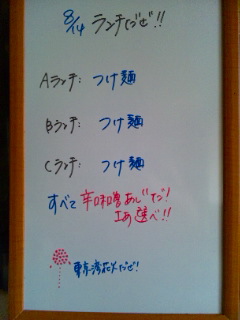 8/14 ランチだぜ!!
Aランチ: つけ麺
Bランチ: つけ麺
Cランチ: つけ麺
すべて辛味噌あじだ!
さあ選べ!!
東京湾花火だぜ!